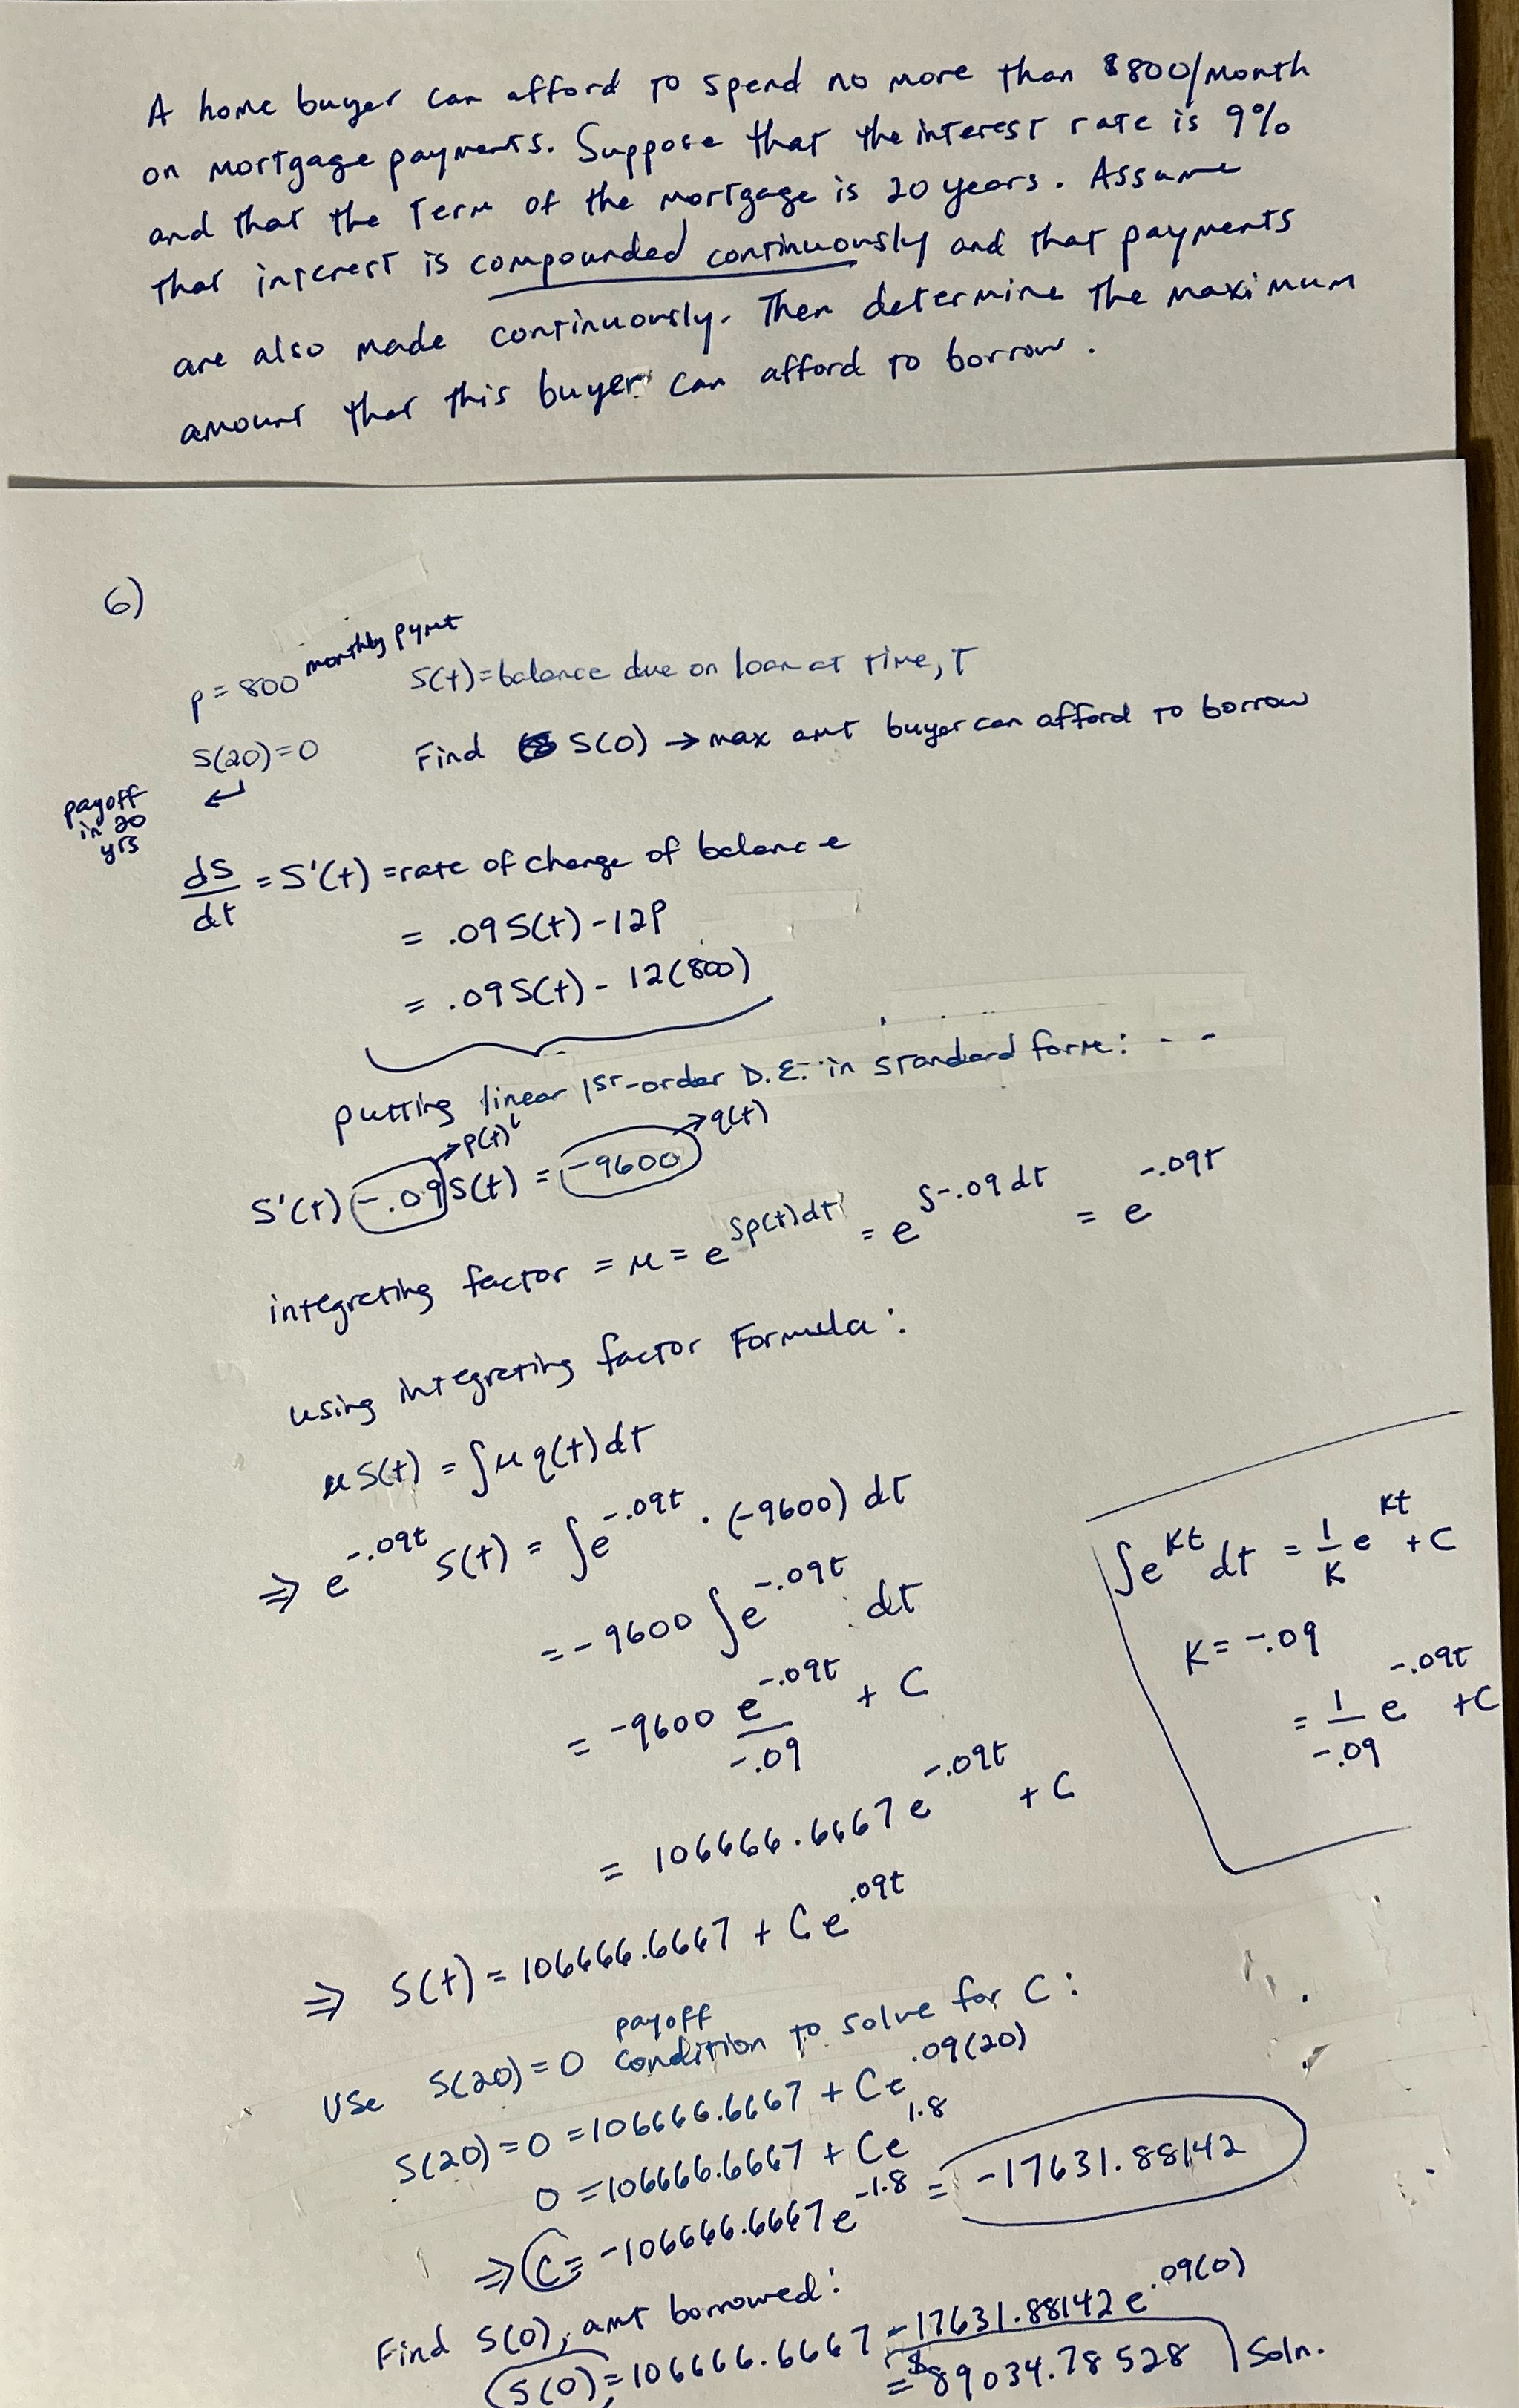 A home buyer can afford to spend no more than $800/month
on mortgage payments. Suppose that the interest rate is 9%
and that the term of the mortgage is 20 years. Assume
that interest is compounded continuously and that payments
are also made continuously. Then determine the maximum
amount that this buyer can afford to borrow.
6)
p = 800 monthly pymt
S(t) = balance due on loan at time, T
S(20) = 0
Find S(0) → max amt buyer can afford to borrow
payoff in 20 yrs ↵
dS/dt = S'(t) = rate of change of balance
= .09S(t) - 12P
= .09S(t) - 12(800)
putting linear 1st-order D.E. in standard form:
→p(t) →q(t)
S'(t) -.09 S(t) = -9600
integrating factor = μ = e^∫p(t)dt = e^∫-.09dt = e^-.09t
using integrating factor Formula:
μS(t) = ∫μq(t)dt
⇒ e^-.09t S(t) = ∫e^-.09t . (-9600) dt
= -9600 ∫e^-.09t dt
= -9600 e^-.09t/-.09 + C
= 106666.6667 e^-.09t + C
∫e^kt dt = 1/k e^kt + C
K = -.09
= 1/-.09 e^-.09t + C
⇒ S(t) = 106666.6667 + Ce^.09t
Use S(20) = 0 payoff condition to solve for C:
S(20) = 0 = 106666.6667 + Ce^.09(20)
0 = 106666.6667 + Ce^1.8
⇒ C = -106666.6667e^-1.8 = -17631.88142
Find S(0), amt borrowed:
S(0) = 106666.6667 - 17631.88142e^.09(0)
= $89034.78528 Soln.